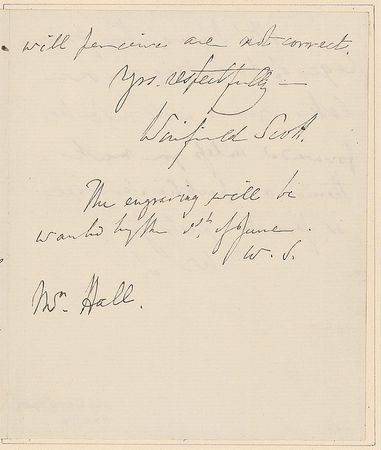 will perceive are not correct.
Yrs. respectfully
Winfield Scott.
The engraving will be
wanted by the 1st. of June.
W. S.
Mr. Hall.